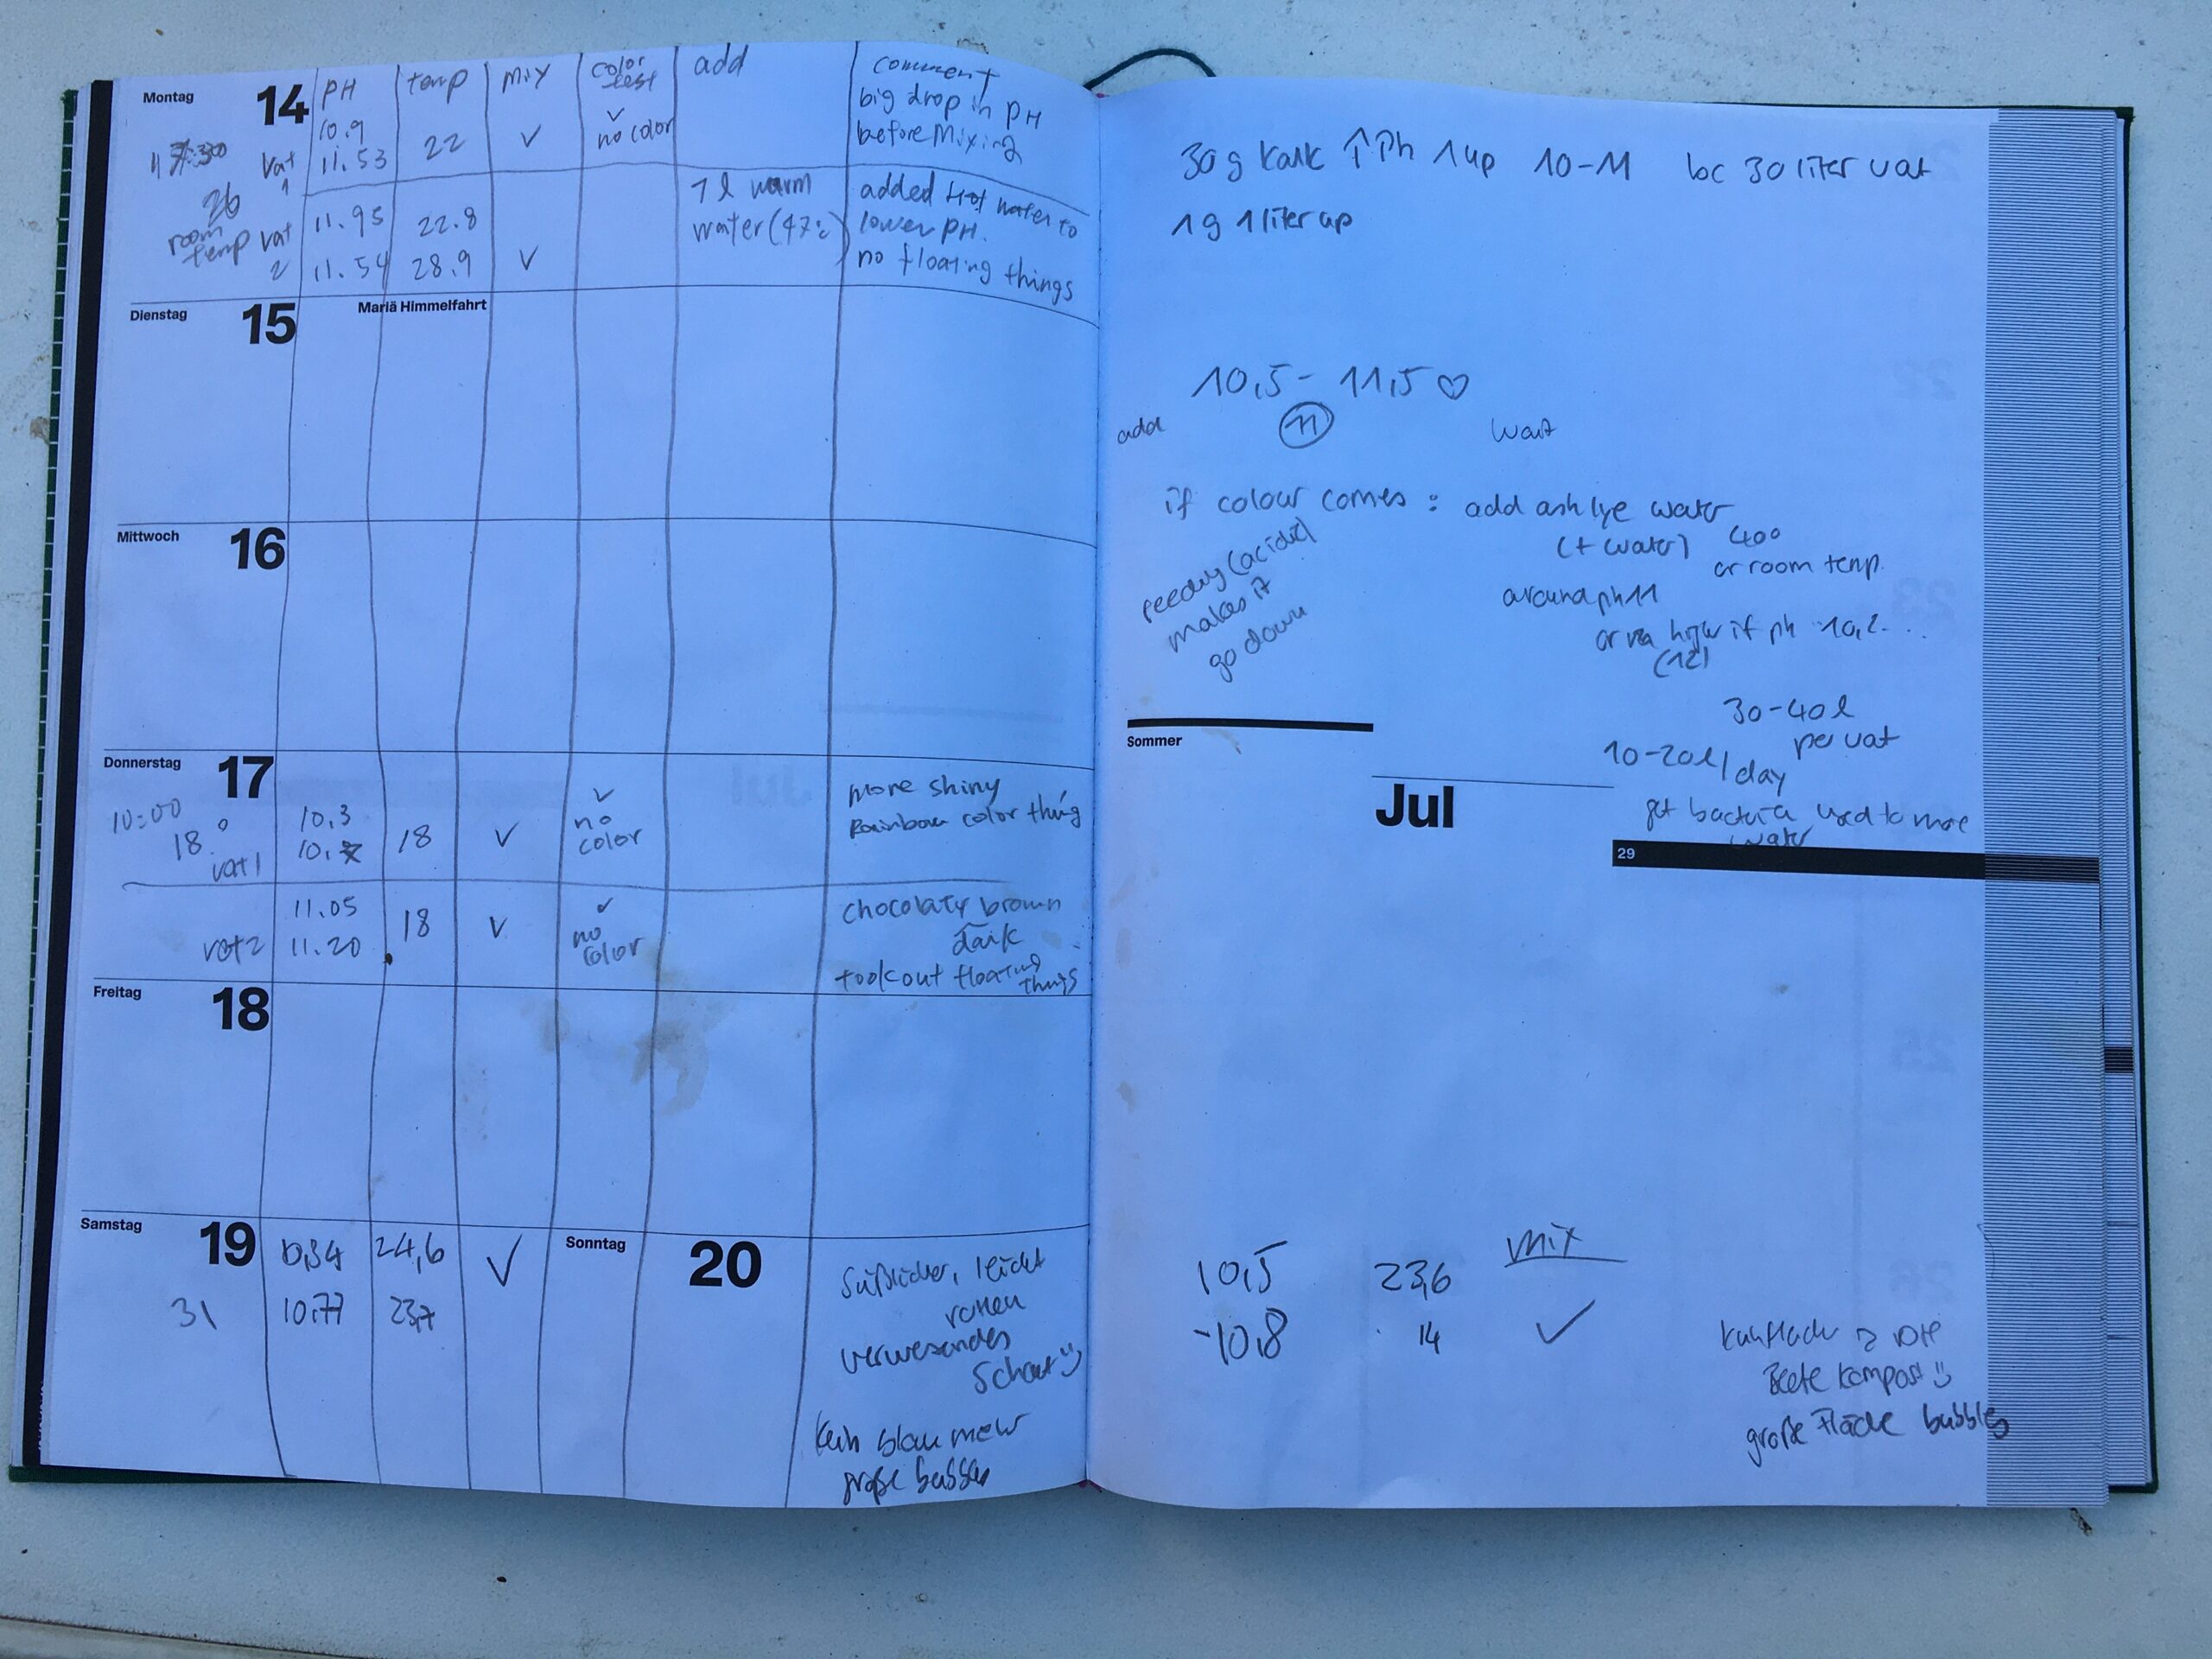 Montag 14 PH temp mix color test add comment
10.9 ✓ big drop in PH
Vat 1 11.53 22 ✓ no color before Mixing
26 room temp
vat 2 11.95 22.8 7 l warm added Hot water to
water (47°c) lower PH.
11.54 28.9 ✓ no floating things
Dienstag 15 Mariä Himmelfahrt
Mittwoch 16
Donnerstag 17
10:00 ✓ more shiny
18° 10.3 no Rainbow color thing
vat 1 10. 18 ✓ color
11.05 ✓ chocolaty brown
18 ✓ no dark
vat 2 11.20 color took out floating things
Freitag 18
Samstag 19 24,6 ✓ Sonntag 20
31 10.77 23,7
Süßlicher, leicht
verwesendes
Kein blau mehr
große bubbles
30 g Kalk ↑ Ph 1 up 10-11 bc 30 liter vat
1 g 1 liter up
10,5 - 11,5 ♡
add 11 wait
if colour comes : add ash lye water
(+ water) 40°
or room temp.
feeding (acidic)
makes it
go down
around ph 11
if ph 10,2...
(12)
30-40 l
per vat
10-20 l/day
get bacteria used to more
water
Sommer
Jul
29
mix
10,5 23,6
-10,8 14 ✓
Beete Kompost
große Fläche bubbles